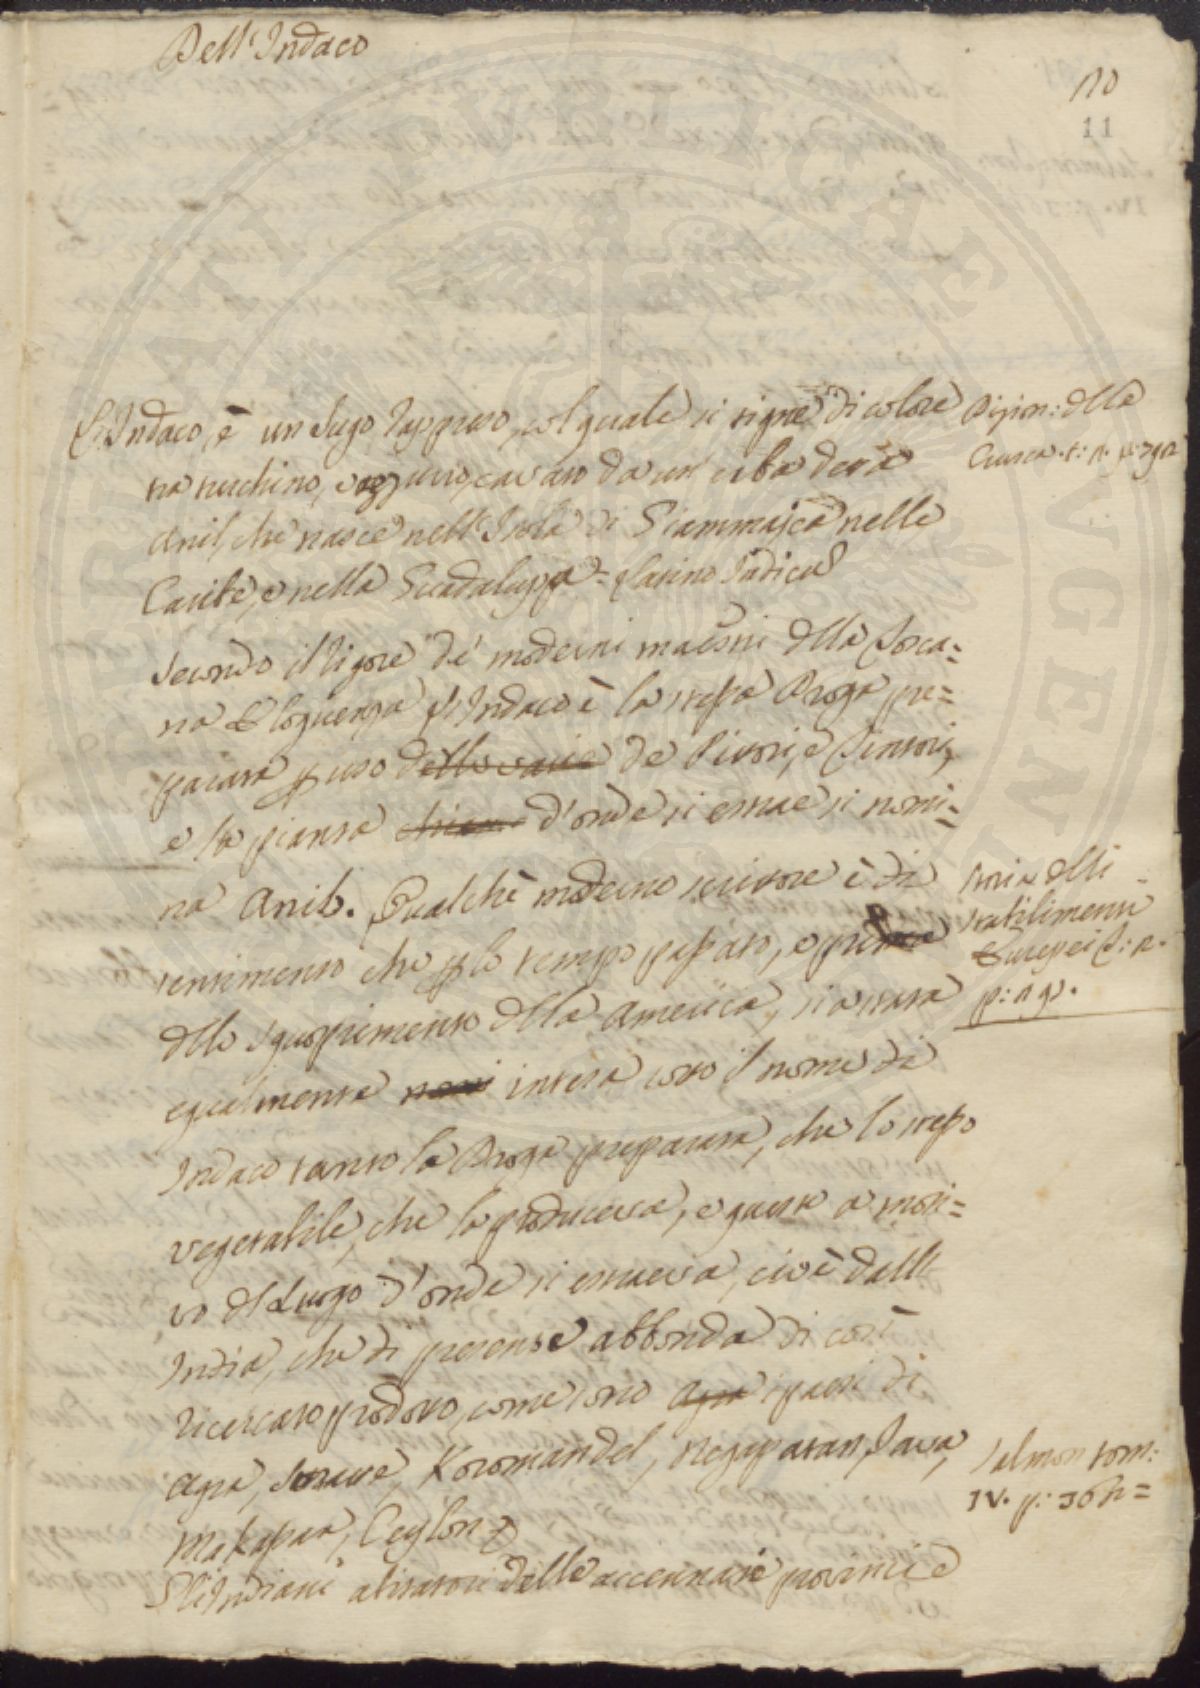 Dell'Indaco
10
11
L'Indaco, è un sugo rappreso, col quale si tigne di colore
tra turchino, e azzurro, cavato da un erba detta
Anil, che nasce nell'Isola di Giammajca nelle
Caribe, e nella Guadaluppa = Latino Indicus
Dizion: della
Crusca t:
Secondo il rigore de' moderni maestri della Tosca=
na Eloquenza l'Indaco è la stessa Droga pre=
parata p uso de Pittori, e Tintori,
e la pianta d'onde si estrae si nomi=
na Anil. Qualche moderno scrittore è di
sentimento che p lo tempo passato, e prima
dello scuoprimento della America, si a stata
egualmente intesa sotto il nome di
Indaco tanto la Droga preparata, che lo stesso
vegetabile, che la produceva, e questo a moti=
vo del Luogo d'onde si estraeva, cioè dall'
India, che di presente abbonda di così
ricercato prodotto, come sono i paesi di
Agra, Koromandel, Negapatan, Java,
Ceylon
Gl'Indiani abitatori delle accennate provincie
Storia delli
Stabilimenti
Europei T:
p: 19.
Salmon tom:
IV. p: